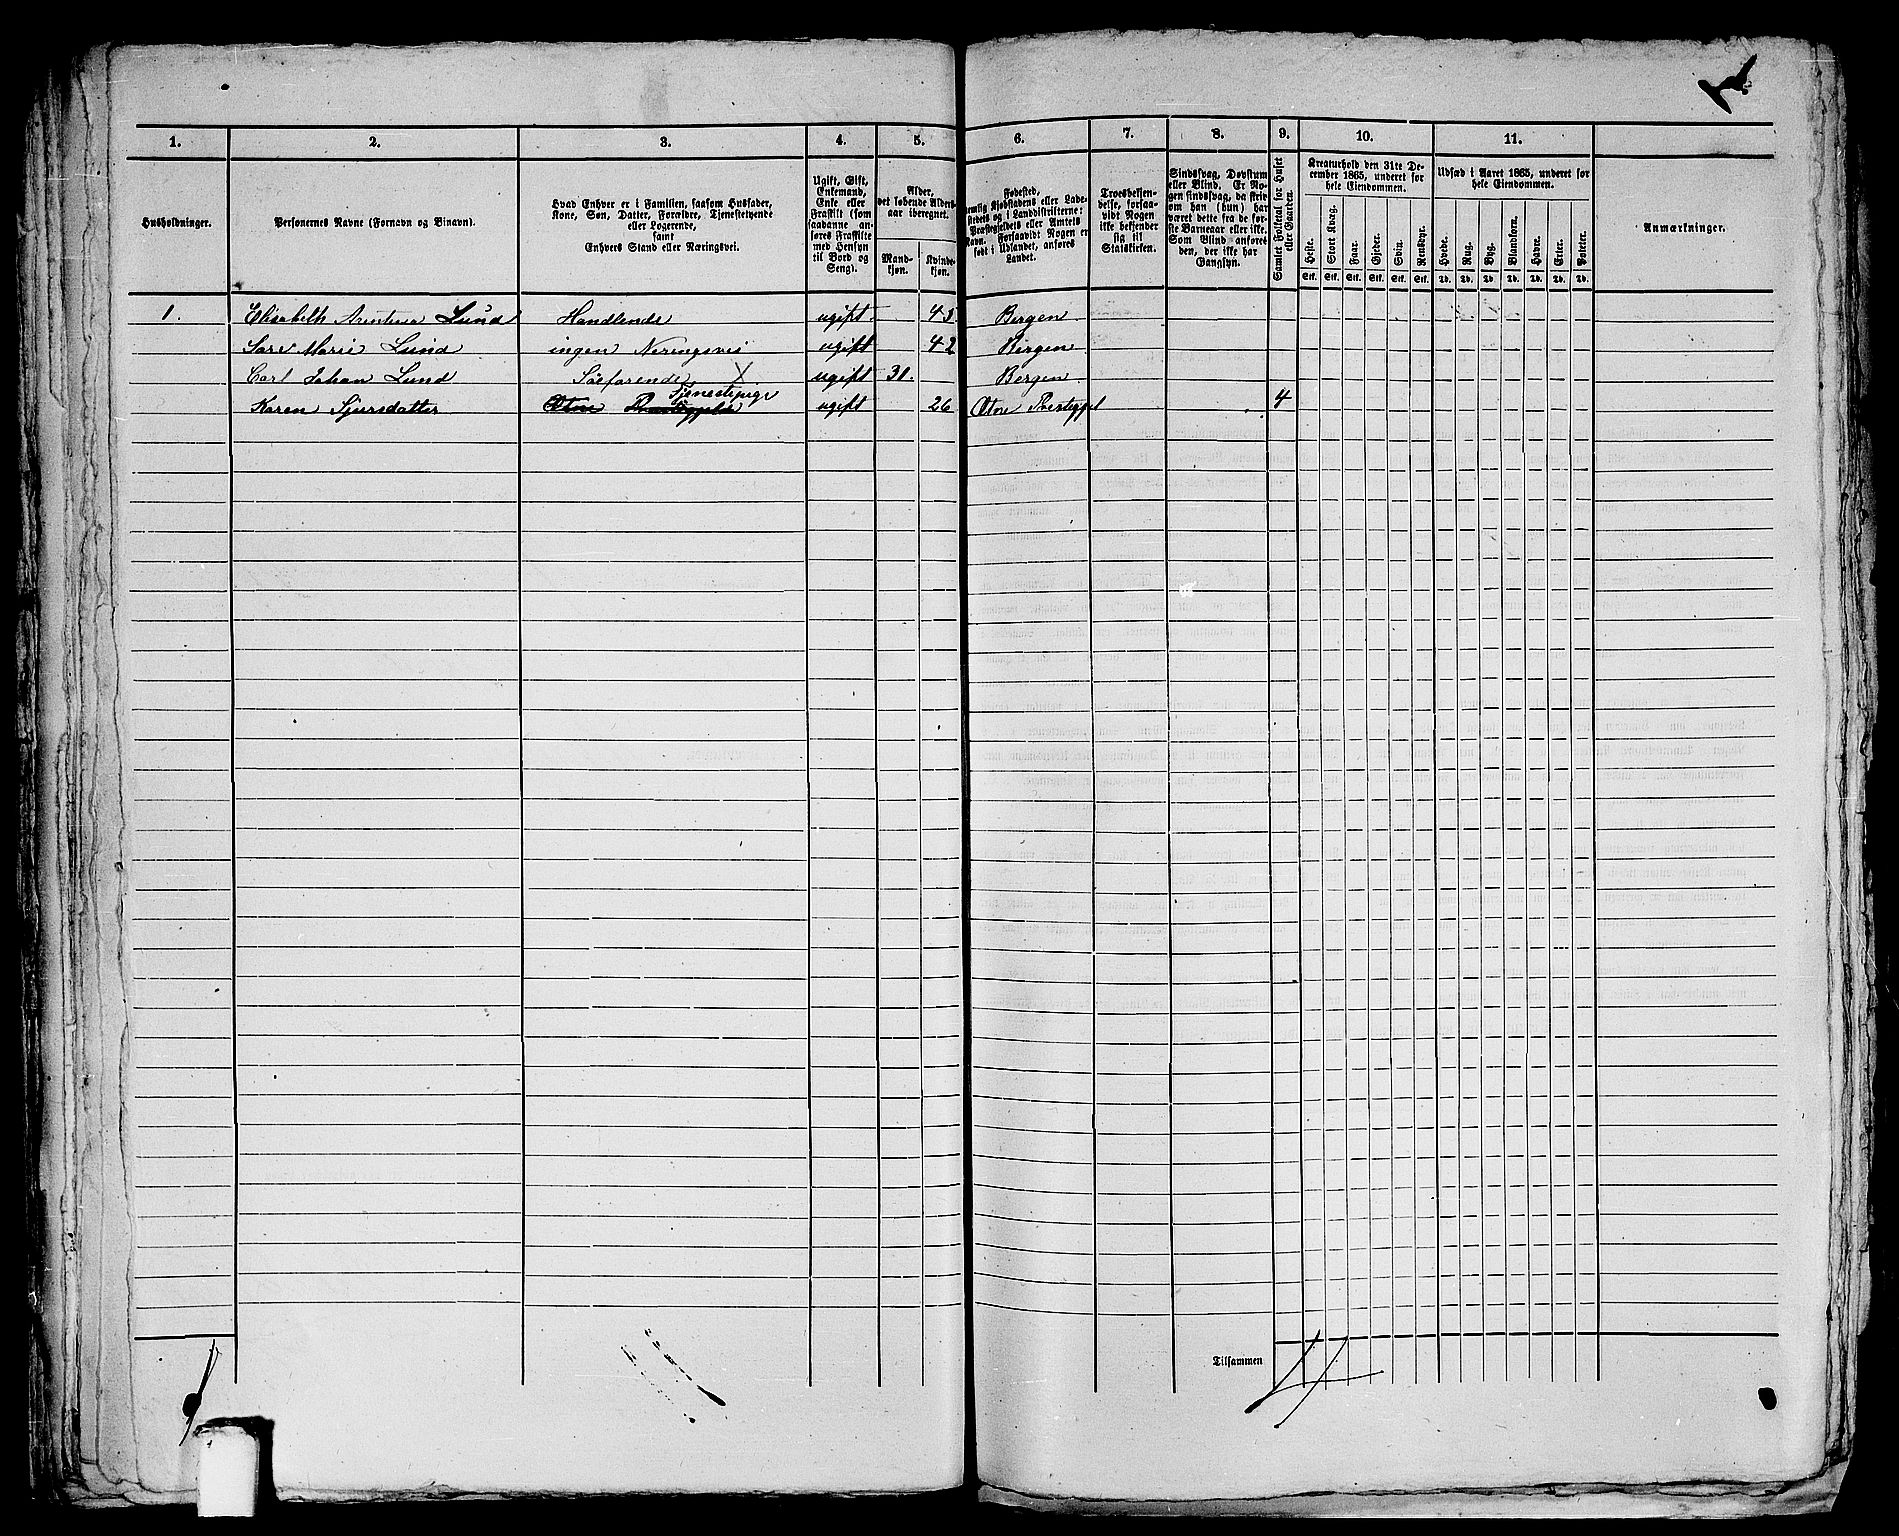 1. 2. 3. 4. 5. 6. 7. 8. 9. 10. 11.
Husholdninger.
Personernes Navne (Fornavn og Binavn).
Hvad Enhver er i Familien, saasom Husfader,
Kone, Søn, Datter, Forældre, Tjenestetyende
eller Logerende,
samt
Enhvers Stand eller Næringsvei.
Ugift, Gift,
Enkemand,
Enke eller
Fraskilt (som
saadanne an-
føres Fraskilte
med Hensyn
til Bord og
Seng).
Alder,
det løbende Alders-
aar iberegnet.
Mand-
kjøn.
Kvinde-
kjøn.
Fødested,
nemlig Kjøbstadens eller Lade-
stedets og i Landdistrikterne:
Præstegjeldets eller Amtets
Navn. Forsaavidt Nogen er
født i Udlandet, anføres
Landet.
Troesbekjen-
delse, forsaa-
vidt Nogen
ikke bekjender
sig til
Statskirken.
Sindssvag, Døvstum
eller Blind. Er No-
gen sindssvag, da skriv
om han (hun) har
været dette fra de før-
ste Barneaar eller ikke.
Som Blind anføres
den, der ikke har
Gangsyn.
Samlet Folketal for Huset
eller Gaarden.
Kreaturhold den 31te De-
cember 1865, underet for
hele Eiendommen.
Heste. Stort Kvæg. Faar. Gjeder. Svin. Rensdyr.
Stk. Stk. Stk. Stk. Stk. Stk.
Udsæd i Aaret 1865, underet for
hele Eiendommen.
Hvede. Rug. Byg. Blandkorn. Havre. Erter. Poteter.
Td. Td. Td. Td. Td. Td. Td.
Anmærkninger.
1. Elisabeth Lund Handlende ugift 43 Bergen
Marie Lund ingen Neringsvei ugift 42 Bergen
Carl Johan Lund Söefarende X ugift 31. Bergen
Tjenestepige
Karen Sjursdatter Etne ugift 26 Etne 4
Tilsammen 4